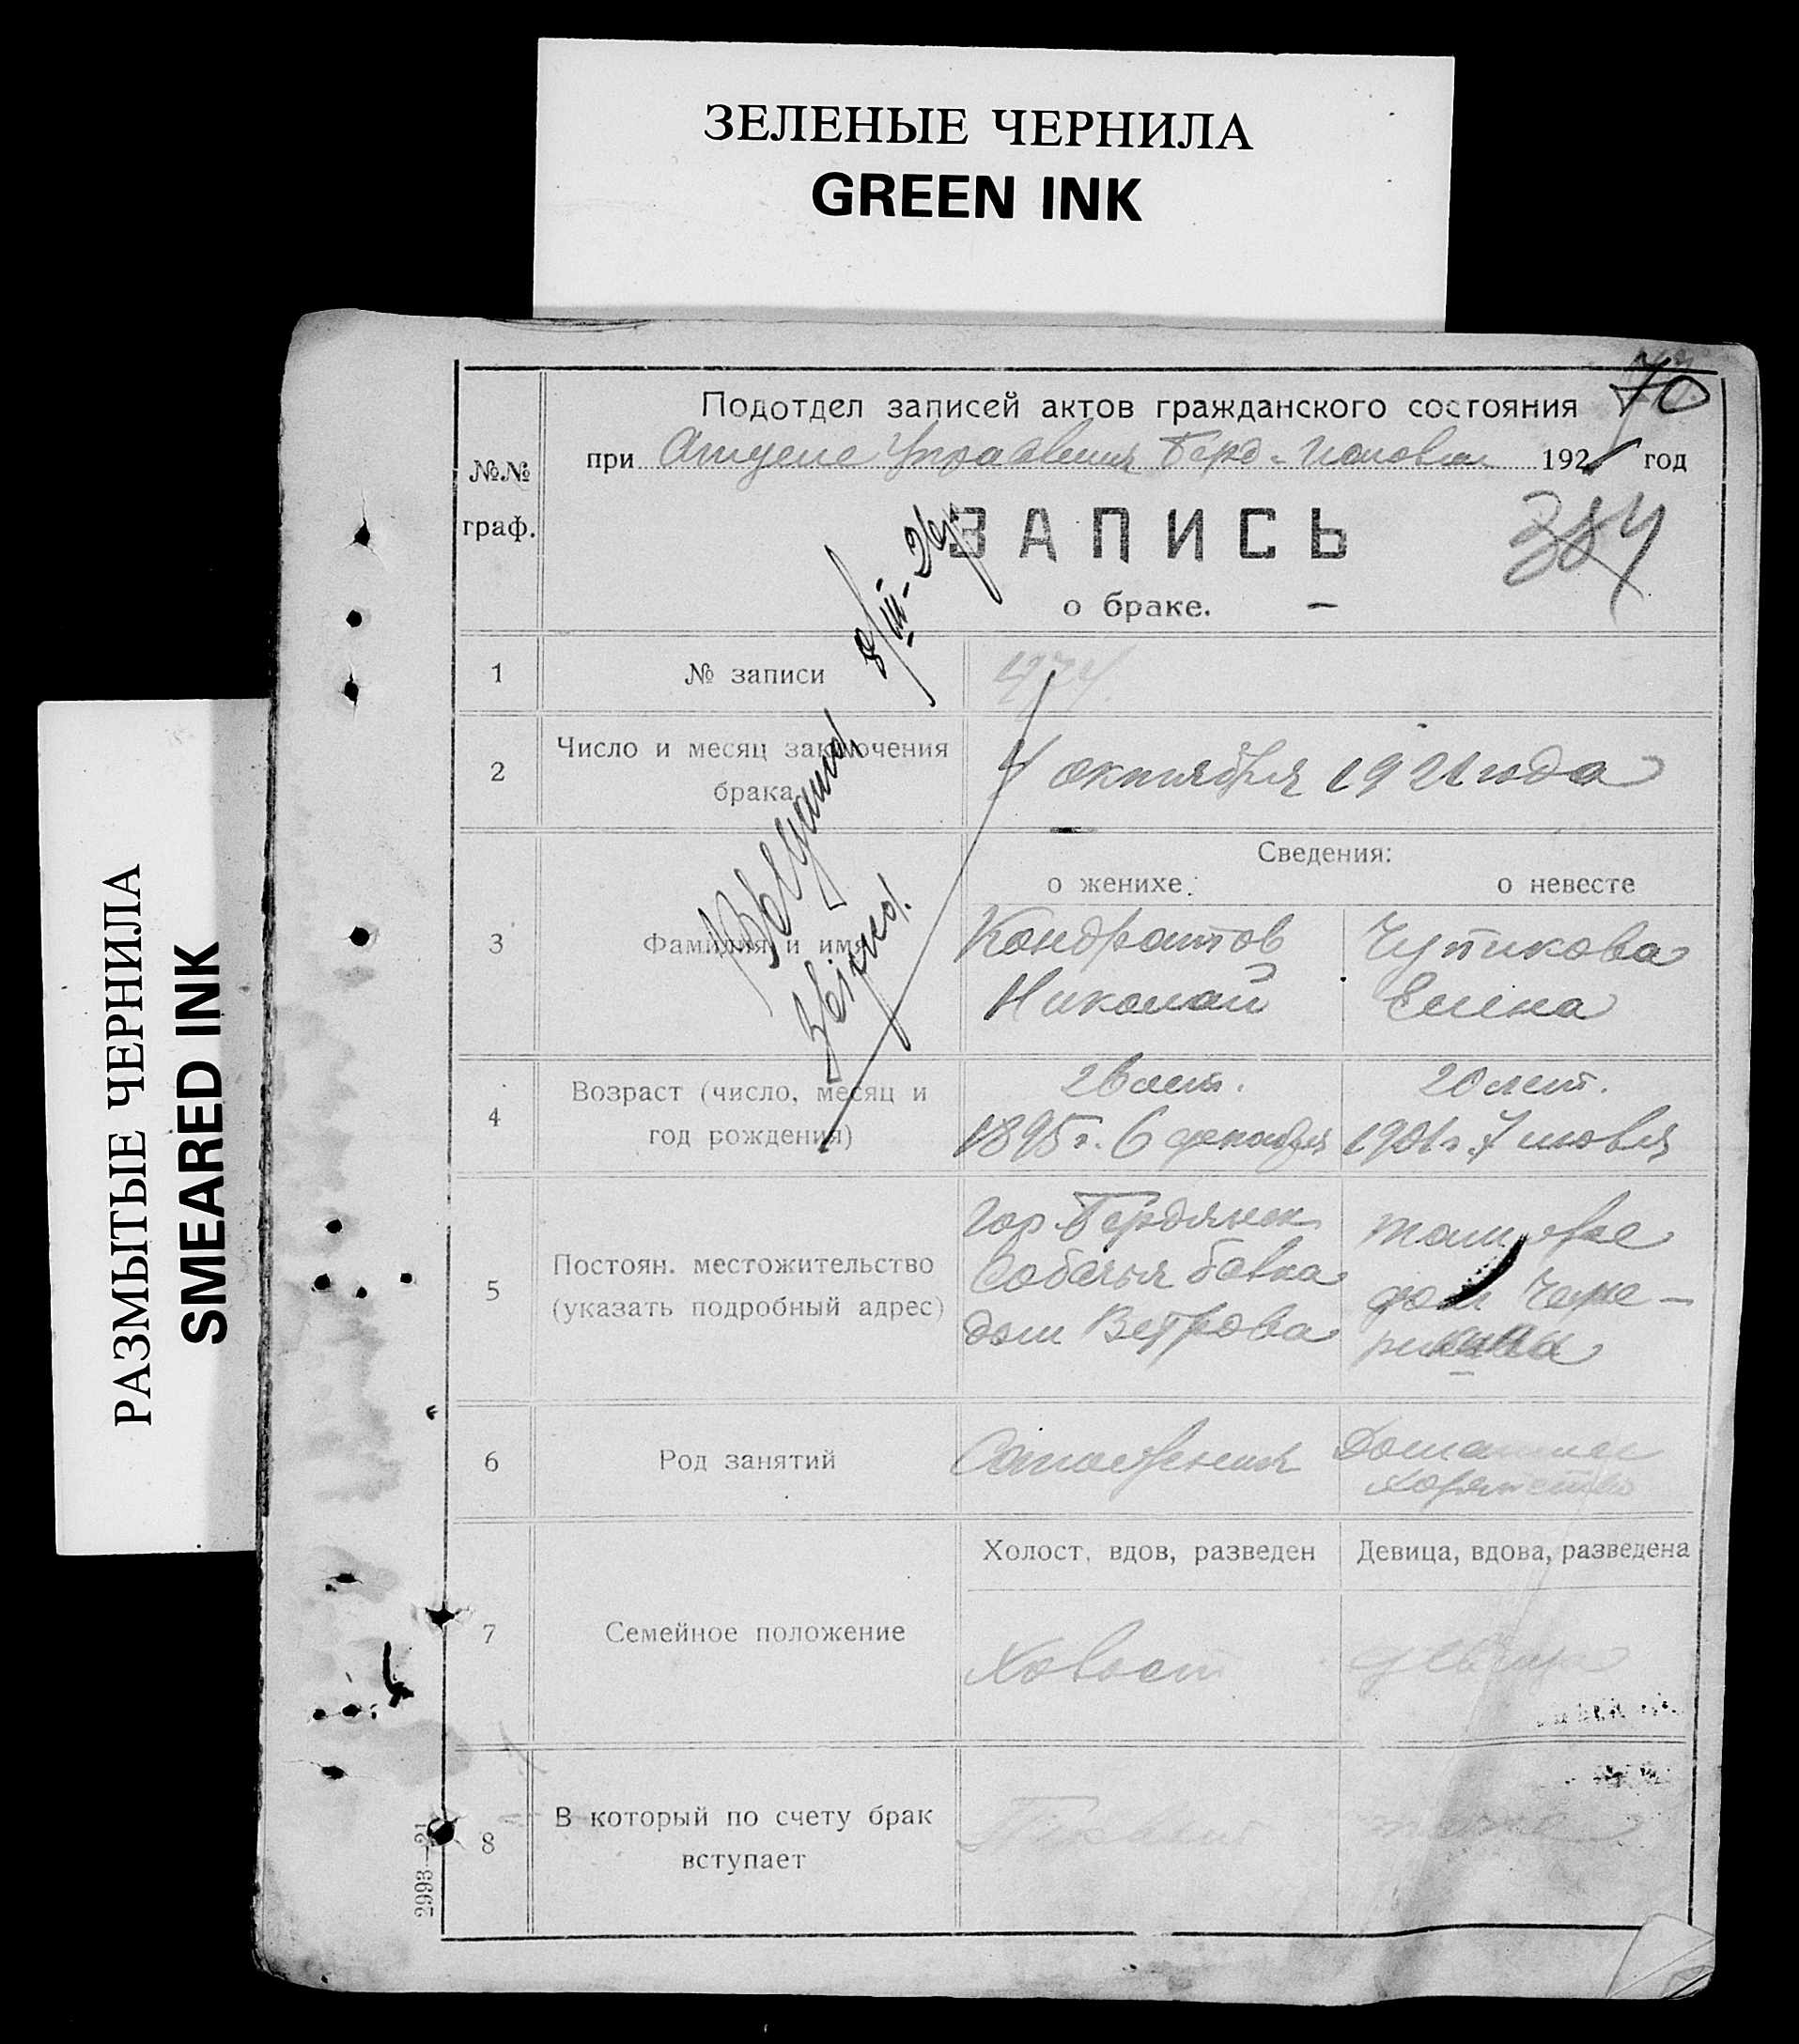 ЗЕЛЕНЫЕ ЧЕРНИЛА
GREEN INK
РАЗМЫТЫЕ ЧЕРНИЛА
SMEARED INK
70
Подотдел записей актов гражданского состояния
при Отделе Управления Берд- 1921 год
№№
граф.
ЗАПИСЬ
384
о браке.
8/III-26
1 № записи
2 Число и месяц заключения брака
4 октября 1921 года
Сведения:
о женихе: о невесте
3 Фамилия и имя
Кондратов Чупикова
Николай Елена
4 Возраст (число, месяц и
год рождения)
26 лет. 20 лет.
1895 г. 6 декабря 1901 г. 7
5 Постоян. местожительство
(указать подробный адрес)
гор. Бердянск там же
Собачья балка дом
дом Ветрова
6 Род занятий
Домашнее
хозяйство
Холост, вдов, разведен Девица, вдова, разведена
7 Семейное положение
Холост девица
8 В который по счету брак
вступает
Первый тоже
2993—21